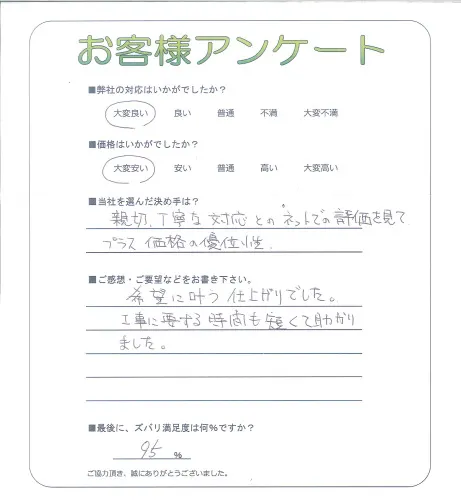 お客様アンケート
■弊社の対応はいかがでしたか?
大変良い 良い 普通 不満 大変不満
■価格はいかがでしたか?
大変安い 安い 普通 高い 大変高い
■当社を選んだ決め手は?
親切、丁寧な対応とのネットでの評価を見て
プラス価格の優位性.
■ご感想・ご要望などをお書き下さい。
希望に叶う仕上がりでした。
工事に要する時間も短くて助かり
ました。
■最後に、ズバリ満足度は何%ですか?
95 %
ご協力頂き、誠にありがとうございました。